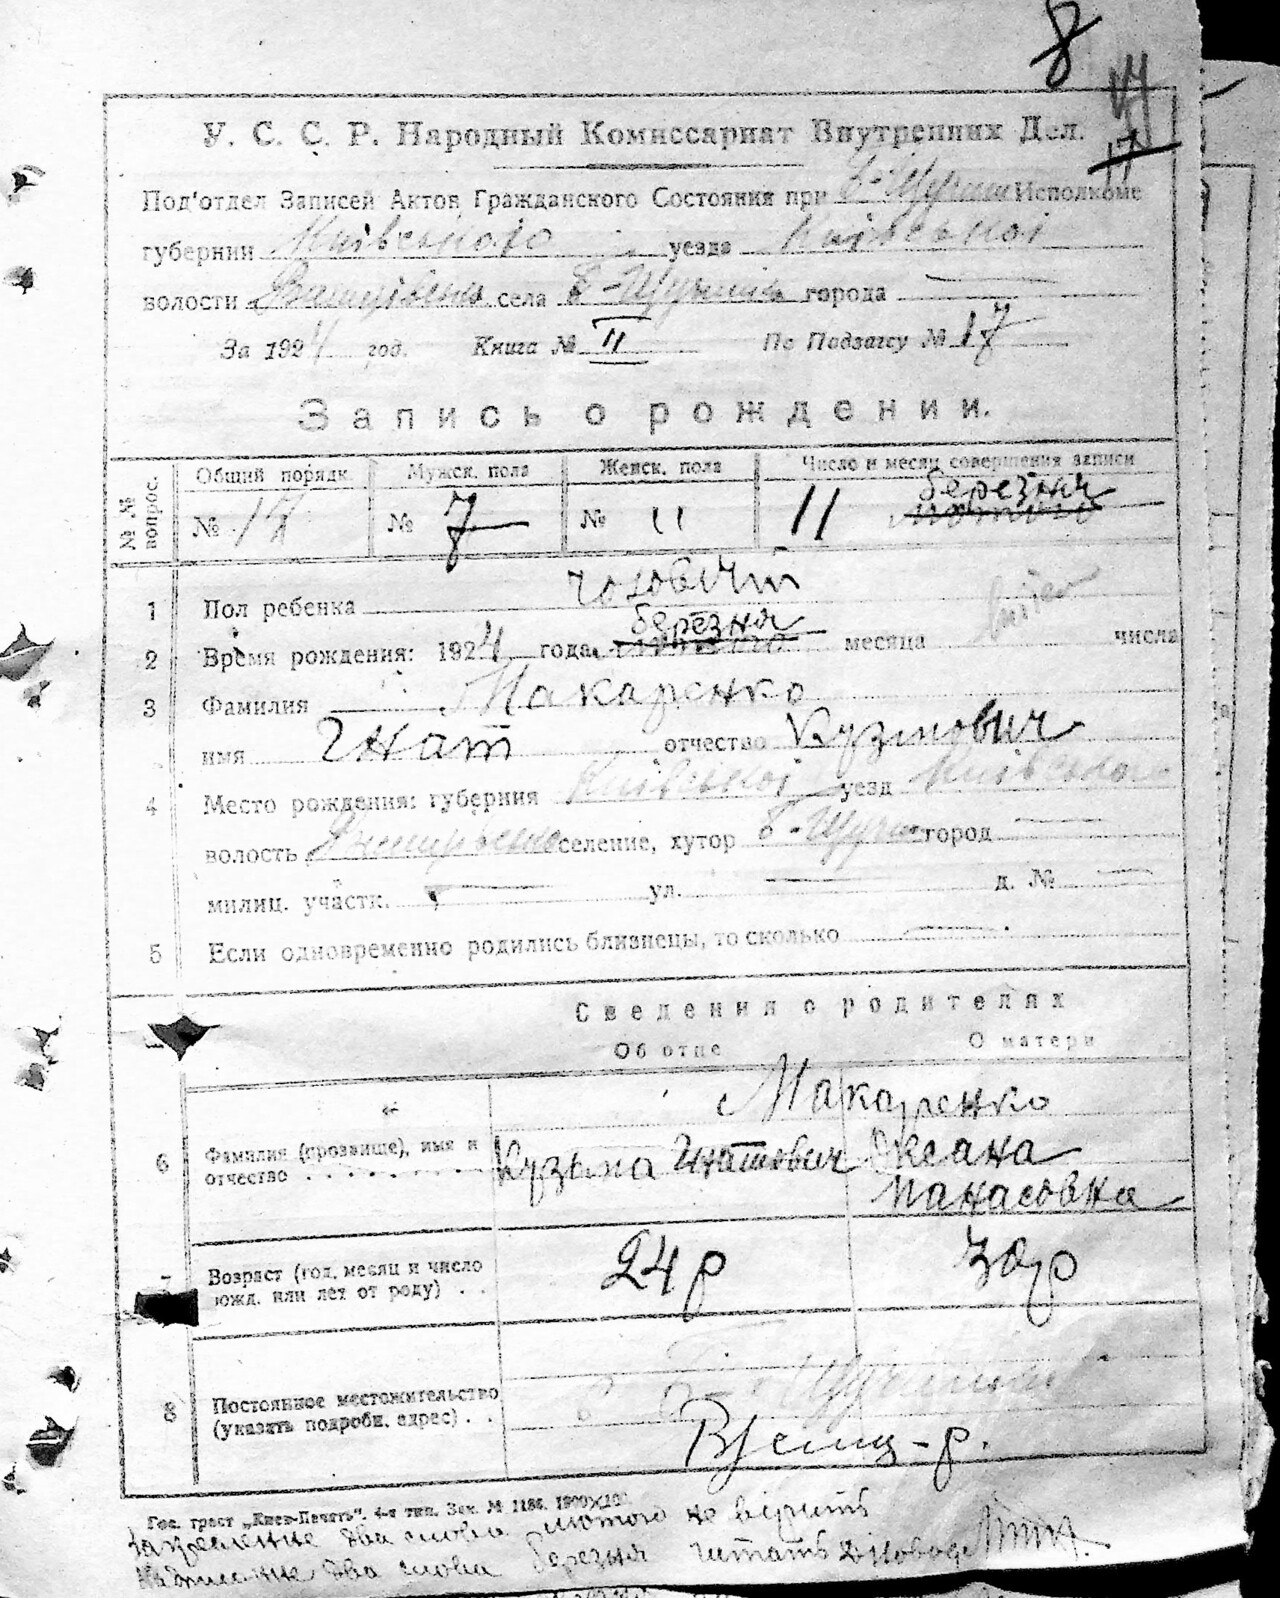 8
17
У. С. С. Р. Народный Комиссариат Внутренних Дел.
Под'отдел Записей Актов Гражданского Состояния при Б-Щучин Исполкоме
губернии Київського уезда Київської
волости села Б-Щучинь города —
За 1924 год. Книга № II По Подзагсу № 17
Запись о рождении.
№ № вопрос. Общий порядк. Мужск. пола Женск. пола Число и месяц совершения записи
березня
№ 17 № 7 № " 11 лютого
чоловічий
1 Пол ребенка
березня
2 Время рождения: 1924 года лютого месяца числа
3 Фамилия Макаренко
имя Гнат отчество Кузмович
4 Место рождения: губерния Київської уезд Київського
волость селение, хутор Б-Щучин город —
милиц. участк. — ул. — д. № —
5 Если одновременно родились близнецы, то сколько —
Сведения о родителях
Об отце О матери
Макаренко
6 Фамилия (прозвище), имя и отчество Кузьма Гнатович Оксана
Панасовна
7 Возраст (год, месяц и число рожд. или лет от роду) 24 р 30 р
8 Постоянное местожительство (указать подробн. адрес) Б-Щучинка
Гос. трест „Киев-Печать", 4-я тип. Зак. № 1186.
Закреслене два слова лютого не вірить
Надписане два слова березня читать